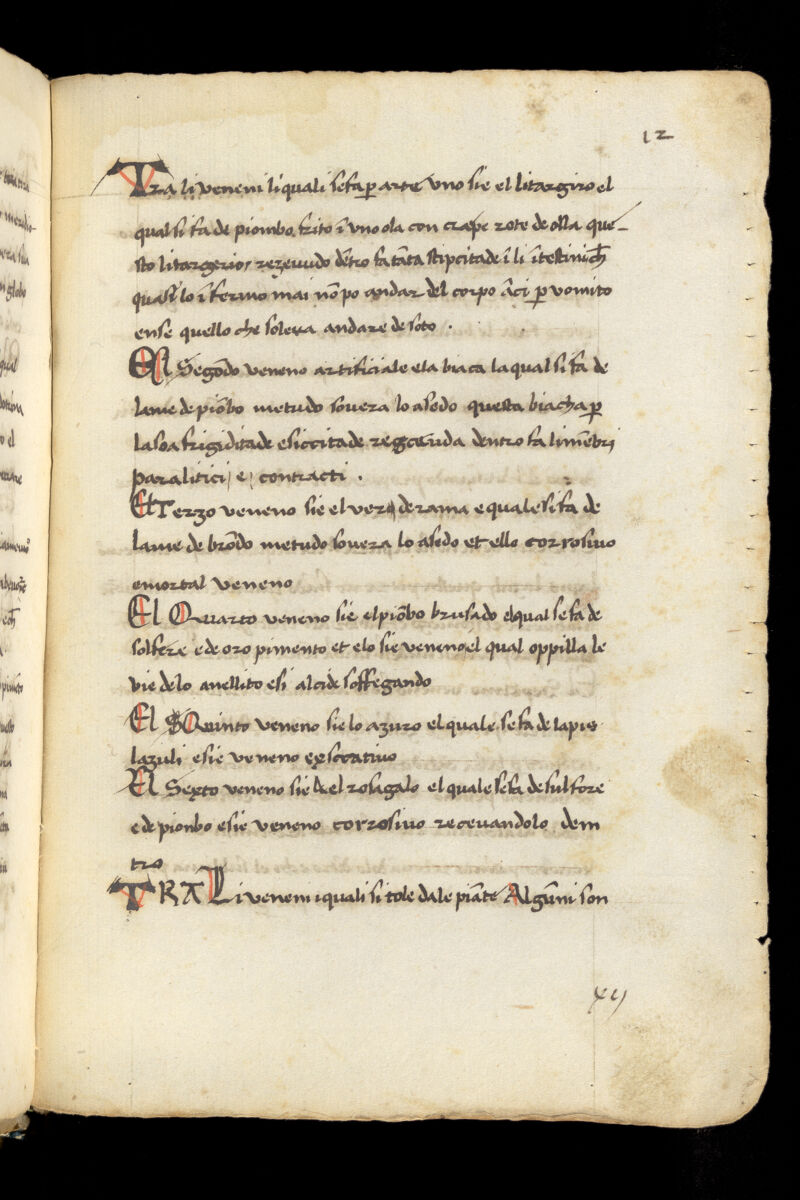 12
Tra li veneni li quali se fa ꝑ arte uno sie el litargiro el
qual si fa de piombo frito ī uno ola con crape rote de olla que-
sto litargerio rezevudo dētro fa tāta stipcitade ī li ītestini ch̄
quasi lo īfermo mai nō po andar del corpo āci ꝑ vomito
ense quello che soleva andare de soto .
El Segōdo veneno artificiale e la biaca la qual si fa de
lame de piōbo metudo sovera lo asedo questa biacha ꝑ
la soa frigiditade e siccitade regceuda dentro fa li mēbri
paralitici e contracti .
El Terzo veneno sie el verde rama e quale si fa de
lame de brōdo metudo sovera lo asedo et ello corrosivo
e mortal veneno
El Quarto veneno sie el piōbo brusado el qual se fa de
solfere e de oro pimento et elo sie veneno el qual oppilla le
vie de lo anellito e si alcide soffegando
El Quinto veneno sie lo azuro el quale se fa de lapis
lazuli e sie veneno
El Sexto veneno sie el rosagalo el quale se fa de sulfore
e de pionbo e sie veneno corrosivo recevandolo dem
tro
TRA Li veneni i quali si tole da le piāte Algūni son
xij